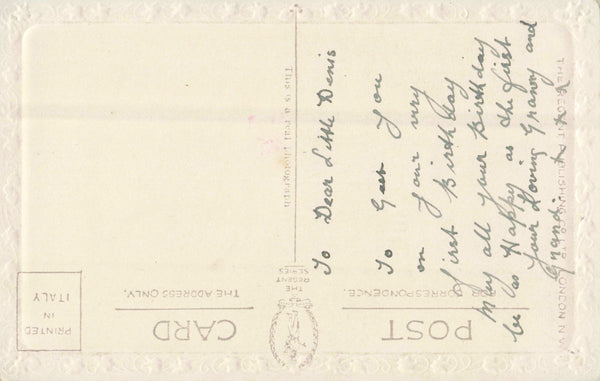 POST CARD
THE REGENT SERIES
FOR CORRESPONDENCE.
THE ADDRESS ONLY.
PRINTED
IN
ITALY
This is a real photograph
THE REGENT PUBLISHING CO LTD LONDON N.W.
To Dear Little Denis
To Geet you
on your very
first Birthday
May all your Birthday
be as Happy as the first
your Loving Granny and
Grandi